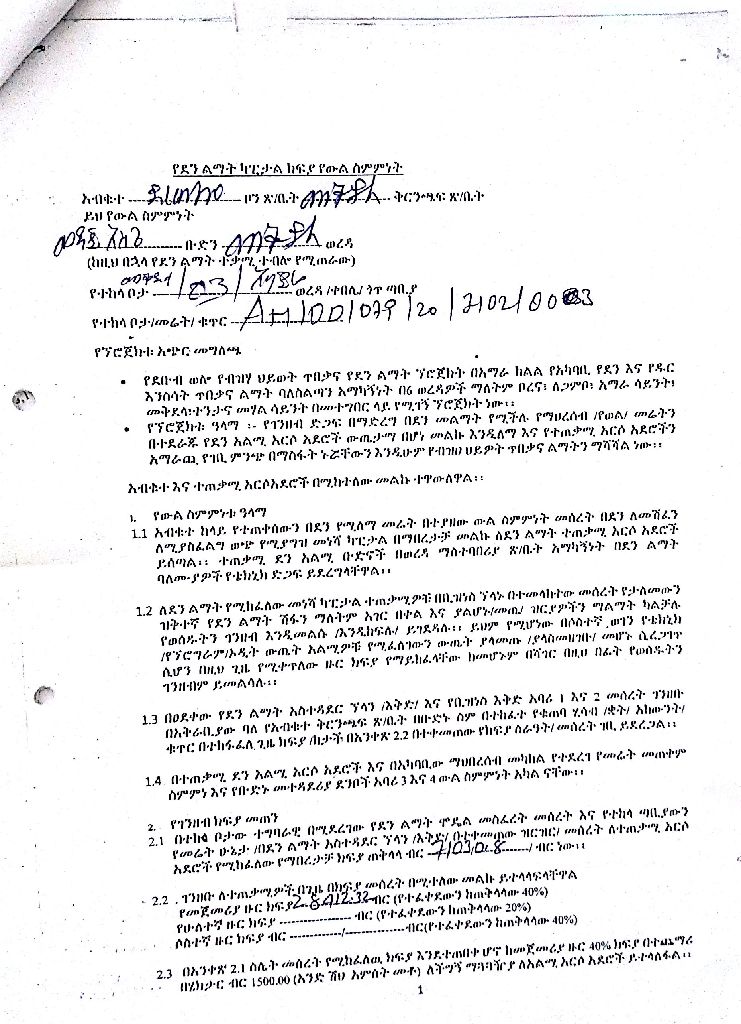 የደን ልማት ካፒታል ክፍያ የውል ስምምነት
አብቁተ ደሴ ዞን ጽ/ቤት መቅደላ ቅርንጫፍ ጽ/ቤት
ይህ የውል ስምምነት
ቡድን መቅደላ ወረዳ
(ከዚህ በኋላ የደን ልማት ተቃሚ ተብሎ የሚጠራው)
የተከላ ቦታ መቅደላ/03/ ወረዳ /ቀበሌ/ ጎጥ ጣቢያ
የተከላ ቦታ/መሬት/ ቁጥር AM/DD/079/20/
የፕሮጀክቱ አጭር መግለጫ
• የደቡብ ወሎ የብዝሃ ህይወት ጥበቃና የደን ልማት ፕሮጀክት በአማራ ክልል የአካባቢ የደን እና የዱር
እንስሳት ጥበቃና ልማት ባለስልጣን አማካኝነት በ6 ወረዳዎች ማለትም ቦረና፣ ለጋምቦ፣ አማራ ሳይንት፣
መቅደላ፣ተንታና መሃል ሳይንት በመተግበር ላይ የሚገኝ ፕሮጀክት ነው፡፡
• የፕሮጀክቱ ዓላማ ፡- የገንዘብ ድጋፍ በማድረግ በደን መልማት የሚችሉ የማህረሰብ /የወል/ መሬትን
በተደራጁ የደን አልሚ አርሶ አደሮች ውጤታማ በሆነ መልኩ እንዲለማ እና የተጠቃሚ አርሶ አደሮችን
አማራጪ የገቢ ምንጭ በማስፋት ኑሯቸውን እንዲሁም የብዝሀ ህይዎት ጥበቃና ልማትን ማሻሻል ነው፡፡
አብቁተ እና ተጠቃሚ አርሶአደሮች በሚከተለው መልኩ ተዋውለዋል፡፡
1. የውል ስምምነቱ ዓላማ
1.1 አብቁተ ከላይ የተጠቀሰውን በደን የሚለማ መሬት በተያዘው ውል ስምምነት መሰረት በደን ለመሸፈን
ለሚያስፈልግ ወጭ የሚያግዝ መነሻ ካፒታል በማበረታቻ መልኩ ለደን ልማት ተጠቃሚ አርሶ አደሮች
ይሰጣል፡፡ ተጠቃሚ ደን አልሚ ቡድኖች በወረዳ ማስተባበሪያ ጽ/ቤት አማካኝነት በደን ልማት
ባለሙያዎች የቴክኒክ ድጋፍ ይደረግላቸዋል፡፡
1.2 ለደን ልማት የሚከፈለው መነሻ ካፒታል ተጠቃሚዎቹ በቢዝነስ ፕላኑ በተመላከተው መሰረት የታለመውን
ዝቅተኛ የደን ልማት ሽፋን ማለትም አገር በቀል እና ያልሆኑ/መጤ/ ዝርያዎችን ማልማት ካልቻሉ
የወሰዱትን ገንዘብ እንዲመልሱ /እንዲከፍሉ/ ይገደዳሉ፡፡ ይህም የሚሆነው በሶስተኛ ወገን የቴክኒክ
/የፕሮግራም/ኦዲት ውጤት አልሚዎቹ የሚፈለገውን ውጤት ያላመጡ /ያላስመዘገቡ/ መሆኑ ሲረጋገጥ
ሲሆን ከዚህ ጊዜ የሚቀጥለው ዙር ክፍያ የማይከፈላቸው ከመሆኑም በሻገር በዚህ በፊት የወሰዱትን
ገንዘብም ይመልሳሉ፡፡
1.3 በፀደቀው የደን ልማት አስተዳደር ፕላን /እቅድ/ እና የቢዝነስ እቅድ አባሪ 1 እና 2 መሰረት ገንዘቡ
በአቅራቢያው ባለ የአብቁተ ቅርንጫፍ ጽ/ቤት በቡድኑ ስም በተከፈተ የቁጠባ ሂሳብ /ቋት/ አካውንት/
ቁጥር በተከፋፈለ ጊዜ ክፍያ /ከታች በአንቀጽ 2.2 በተቀመጠው የክፍያ ስራዓት/ መሰረት ገቢ ይደረጋል፡፡
1.4 በተጠቃሚ ደን አልሚ አርሶ አደሮች እና በአካባቢው ማህበረሰብ መካከል የተደረገ የመሬት መጠቀም
ስምምነ እና የቡድኑ መተዳደሪያ ደንቦች አባሪ 3 እና 4 ውል ስምምነት አካል ናቸው፡፡
2. የገንዘብ ክፍያ መጠን
2.1 በተከላ ቦታው ተግባራዊ በሚደረገው የደን ልማት ሞዴል መስፈረት መሰረት እና የተከላ ጣቢያውን
የመሬት ሁኔታ /በደን ልማት አስተዳደር ፕላን /እቅድ/ በተቀመጠው ዝርዝር/ መሰረት ለተጠቃሚ አርሶ
አደሮች የሚከፈለው የማበረታቻ ክፍያ ጠቅላላ ብር 71030.8 / ብር ነው፡፡
2.2 . ገንዘቡ ለተጠቃሚዎች በጊዜ በክፍያ መሰረት በሚተለው መልኩ ይተላለፍላቸዋል
የመጀመሪያ ዙር ክፍያ 28412.32 ብር (የተፈቀደውን ከጠቅላላው 40%)
የሁለተኛ ዙር ክፍያ ------------------ ብር (የተፈቀደውን ከጠቅላላው 20%)
ሶስተኛ ዙር ክፍያ ብር -----------/------------ብር(የተፈቀደውን ከጠቅላላው 40%)
2.3 በአንቀጽ 2.1 ስሌት መሰረት የሚከፈለዉ ክፍያ እንደተጠበቀ ሆኖ ከመጀመሪያ ዙር 40% ክፍያ በተጨማሪ
በሄክታር ብር 1500.00 (አንድ ሽህ አምስት መቶ) ለችግኝ ማጓጓዣያ ለአልሚ አርሶ አደሮች ይተላለፋል፡፡
1